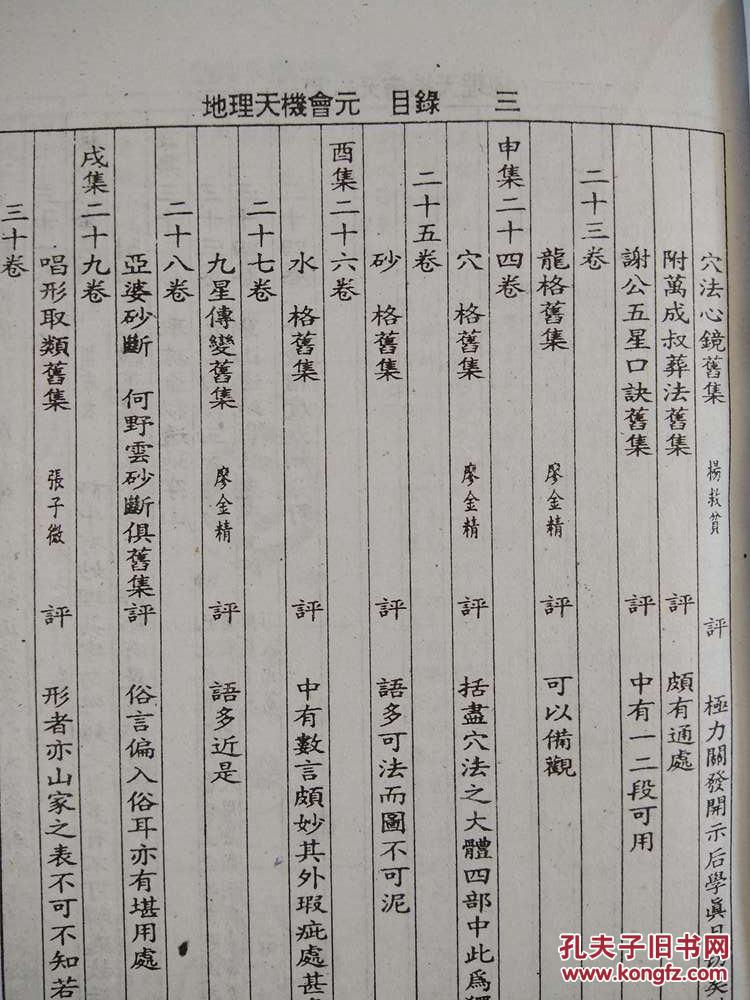 地理天機會元　目錄　三
穴法心鏡舊集　楊救貧　評　極力闢發開示后學眞
附萬成叔葬法舊集　評　頗有通處
謝公五星口訣舊集　評　中有一二段可用
二十三卷
龍格舊集　廖金精　評　可以備觀
申集二十四卷
穴格舊集　廖金精　評　括盡穴法之大體四部中此爲
二十五卷
砂格舊集　評　語多可法而圖不可泥
酉集二十六卷
水格舊集　評　中有數言頗妙其外瑕疵處甚
二十七卷
九星傳變舊集　廖金精　評　語多近是
二十八卷
亞婆砂斷　何野雲砂斷俱舊集　評　俗言偏入俗耳亦有堪用處
戌集二十九卷
唱形取類舊集　張子微　評　形者亦山家之表不可不知若
三十卷
孔夫子旧书网
kongfz.com